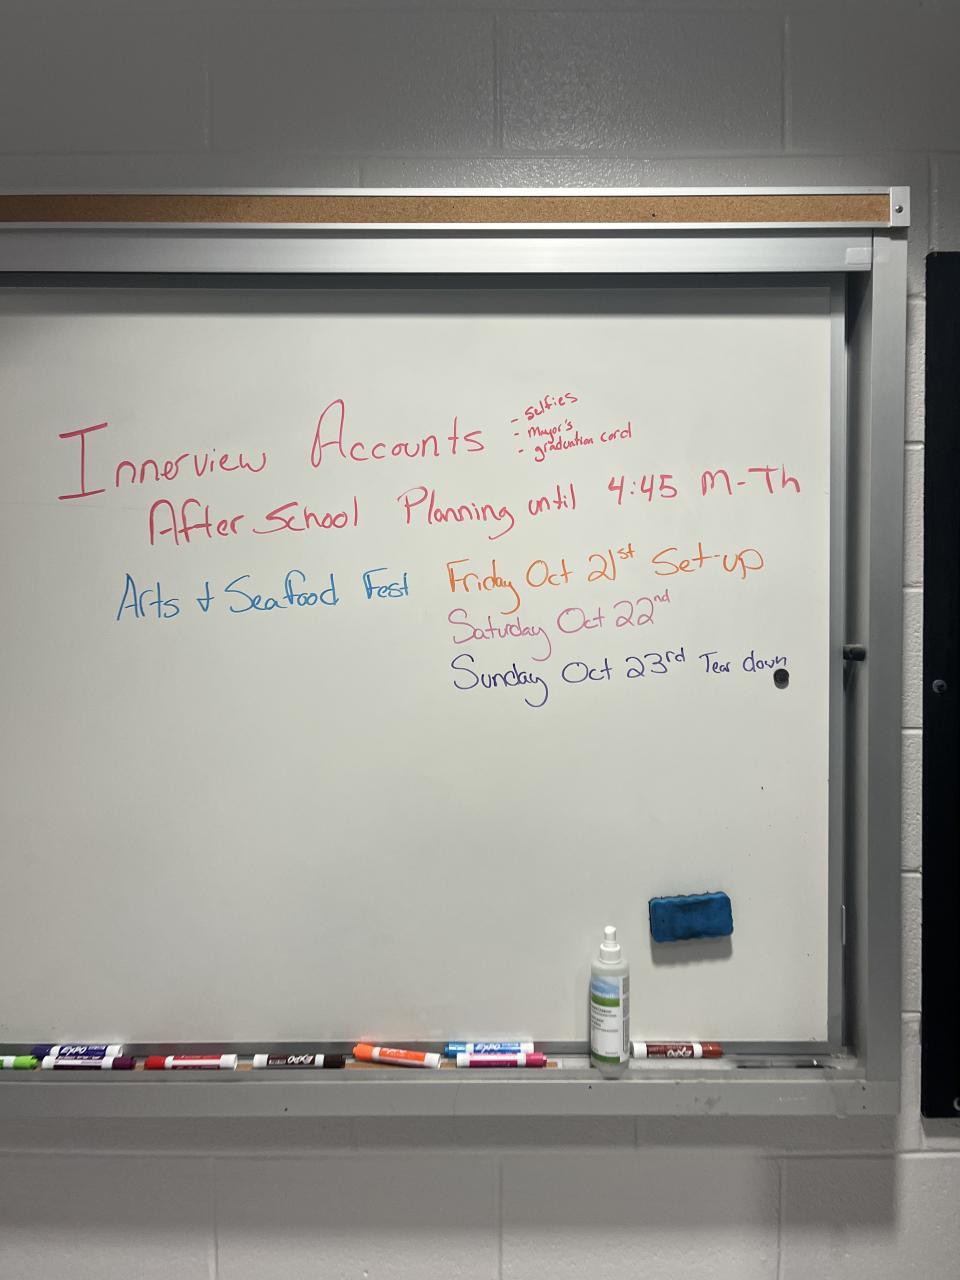 Innerview Accounts
- selfies
- mayor's
- graduation cord
After School Planning until 4:45 M-Th
Arts + Seafood Fest
Friday Oct 21st Set-up
Saturday Oct 22nd
Sunday Oct 23rd Tear down
EXPO
EXPO
EXPO
EXPO